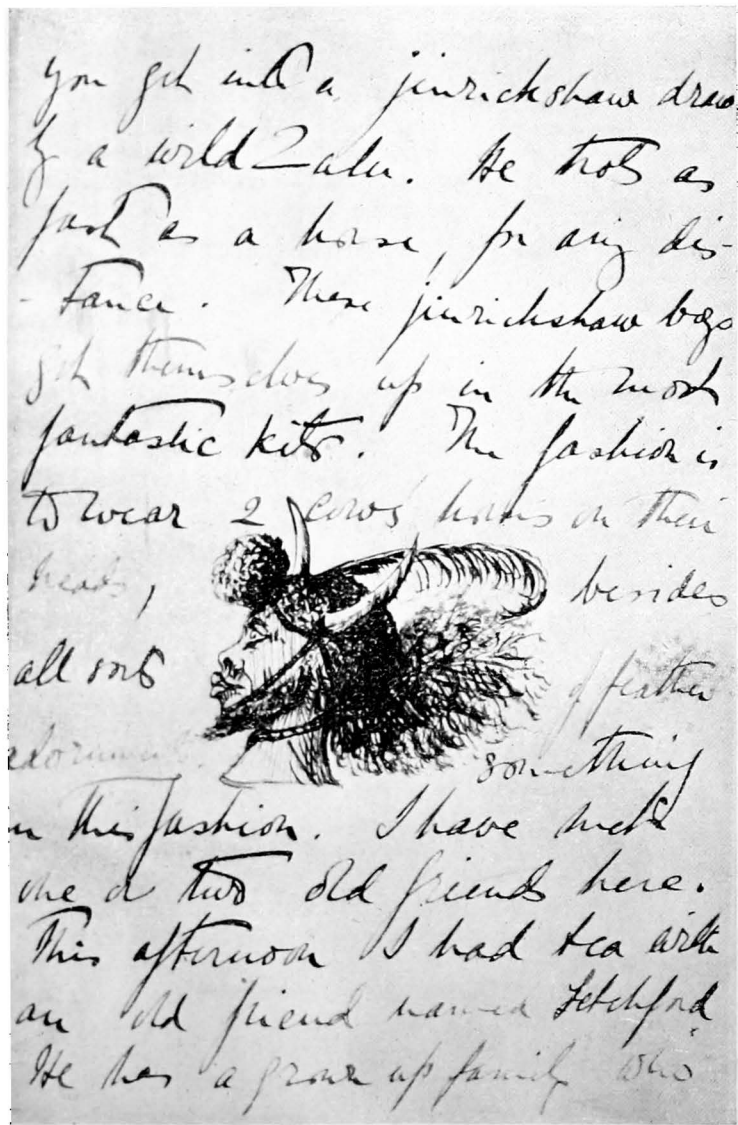 you get into a jinrickshaw draw
by a wild Zulu. He trots as
fast as a horse, for any dis-
-tance. These jinrickshaw boys
get themselves up in the most
fantastic kits. The fashion is
to wear 2 cows' horns on their
heads, besides
all sorts of feather
adornments. something
in this fashion. I have met
one or two old friends here.
This afternoon I had tea with
an old friend named
He has a grown up family who